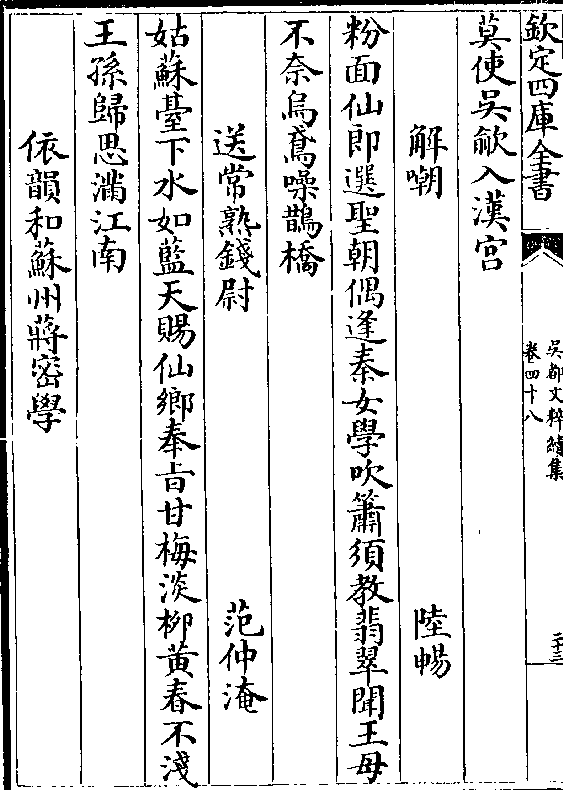 欽定四庫全書
吳都文粹續集
卷四十八
二十三
莫使吳歈入漢宫
解嘲 陸暢
粉面仙郎選聖朝偶逢秦女學吹簫須教翡翠聞王母
不奈烏鳶噪鵲橋
送常熟錢尉 范仲淹
姑蘇臺下水如藍天賜仙鄉奉旨甘梅淡柳黃春不淺
王孫歸思滿江南
依韻和蘇州蔣密學